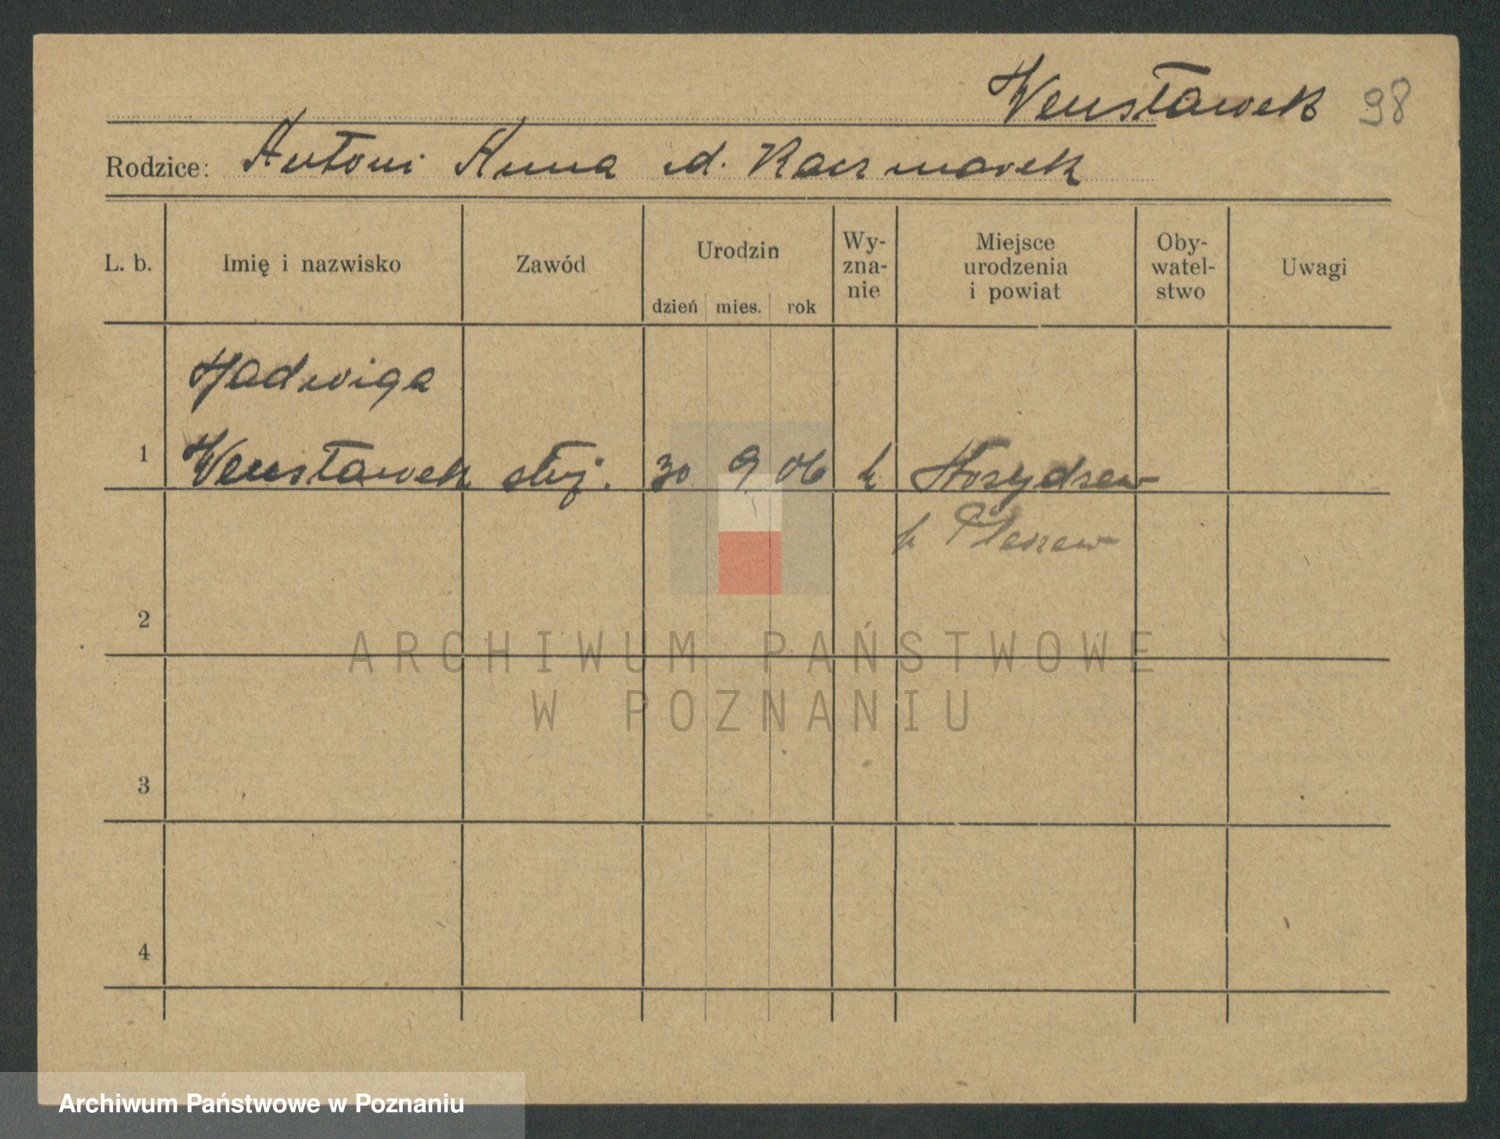 Wensławek 98
Rodzice: Antoni Anna d. Kaczmarek
L. b. Imię i nazwisko Zawód Urodzin dzień mies. rok Wy-zna-nie Miejsce urodzenia i powiat Oby-watel-stwo Uwagi
Jadwiga
1 Wensławek służ. 30 9 06 k
p Pleszew
2
ARCHIWUM PAŃSTWOWE
W POZNANIU
3
4
Archiwum Państwowe w Poznaniu